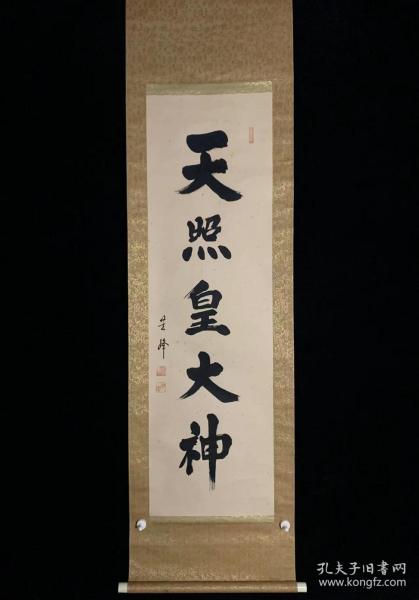 天照皇大神
孔夫子旧书网
www.kongfz.com